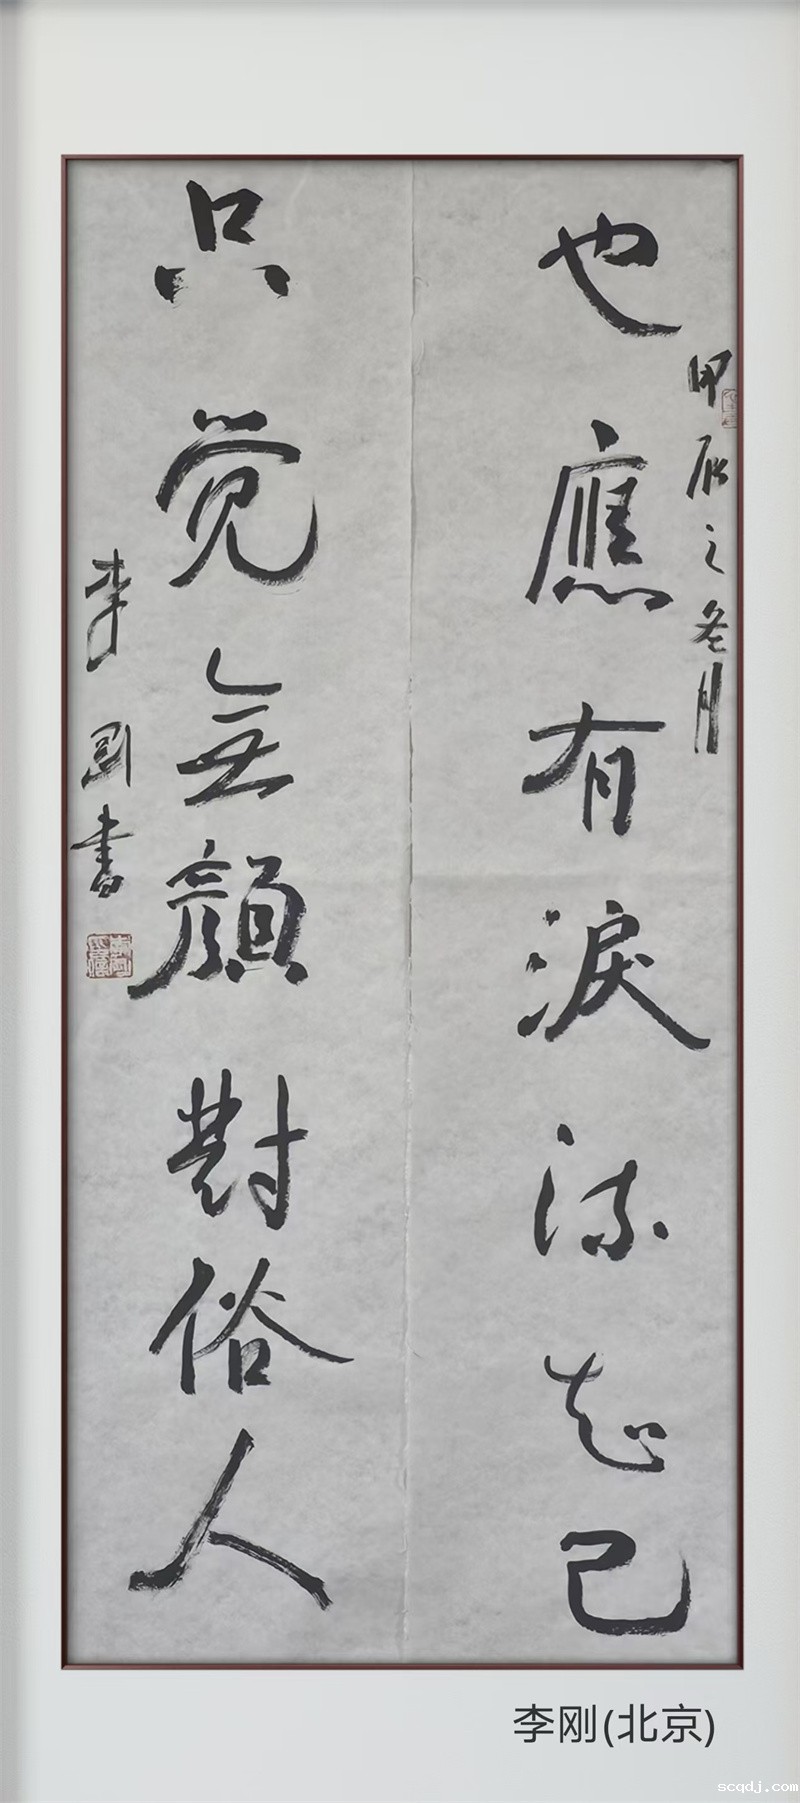 甲辰之冬月
也應有淚流知己
只觉無顔對俗人
李剛書
李刚(北京)
scqdj.com